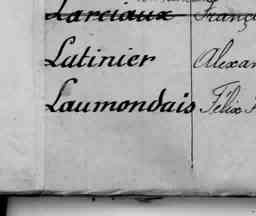 Larciaux Franç
Latinier Alexan
Laumondais Félix